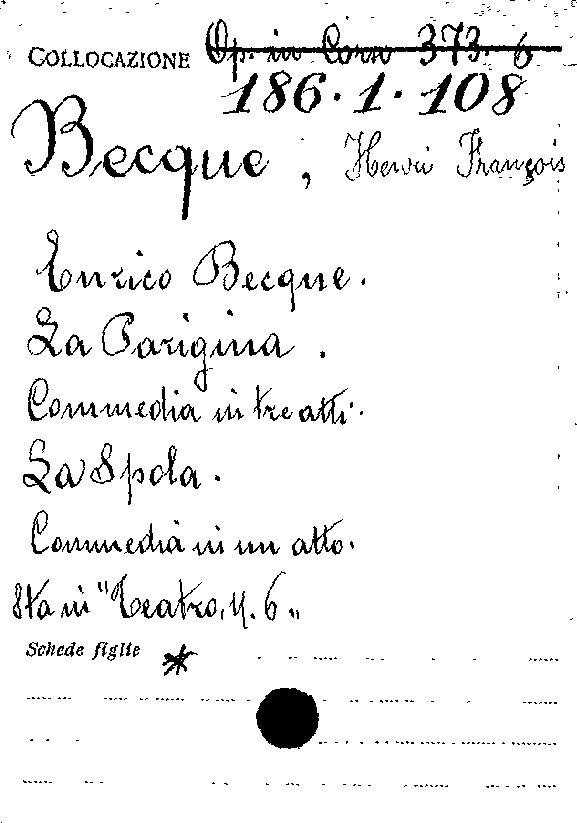 COLLOCAZIONE Op. in Corn 373. 6
186.1.108
Becque, Henri François
Enrico Becque.
La Parigina.
Commedia in tre atti.
La Spola.
Commedia in un atto.
Sta in "Teatro, N. 6„
Schede figlie *